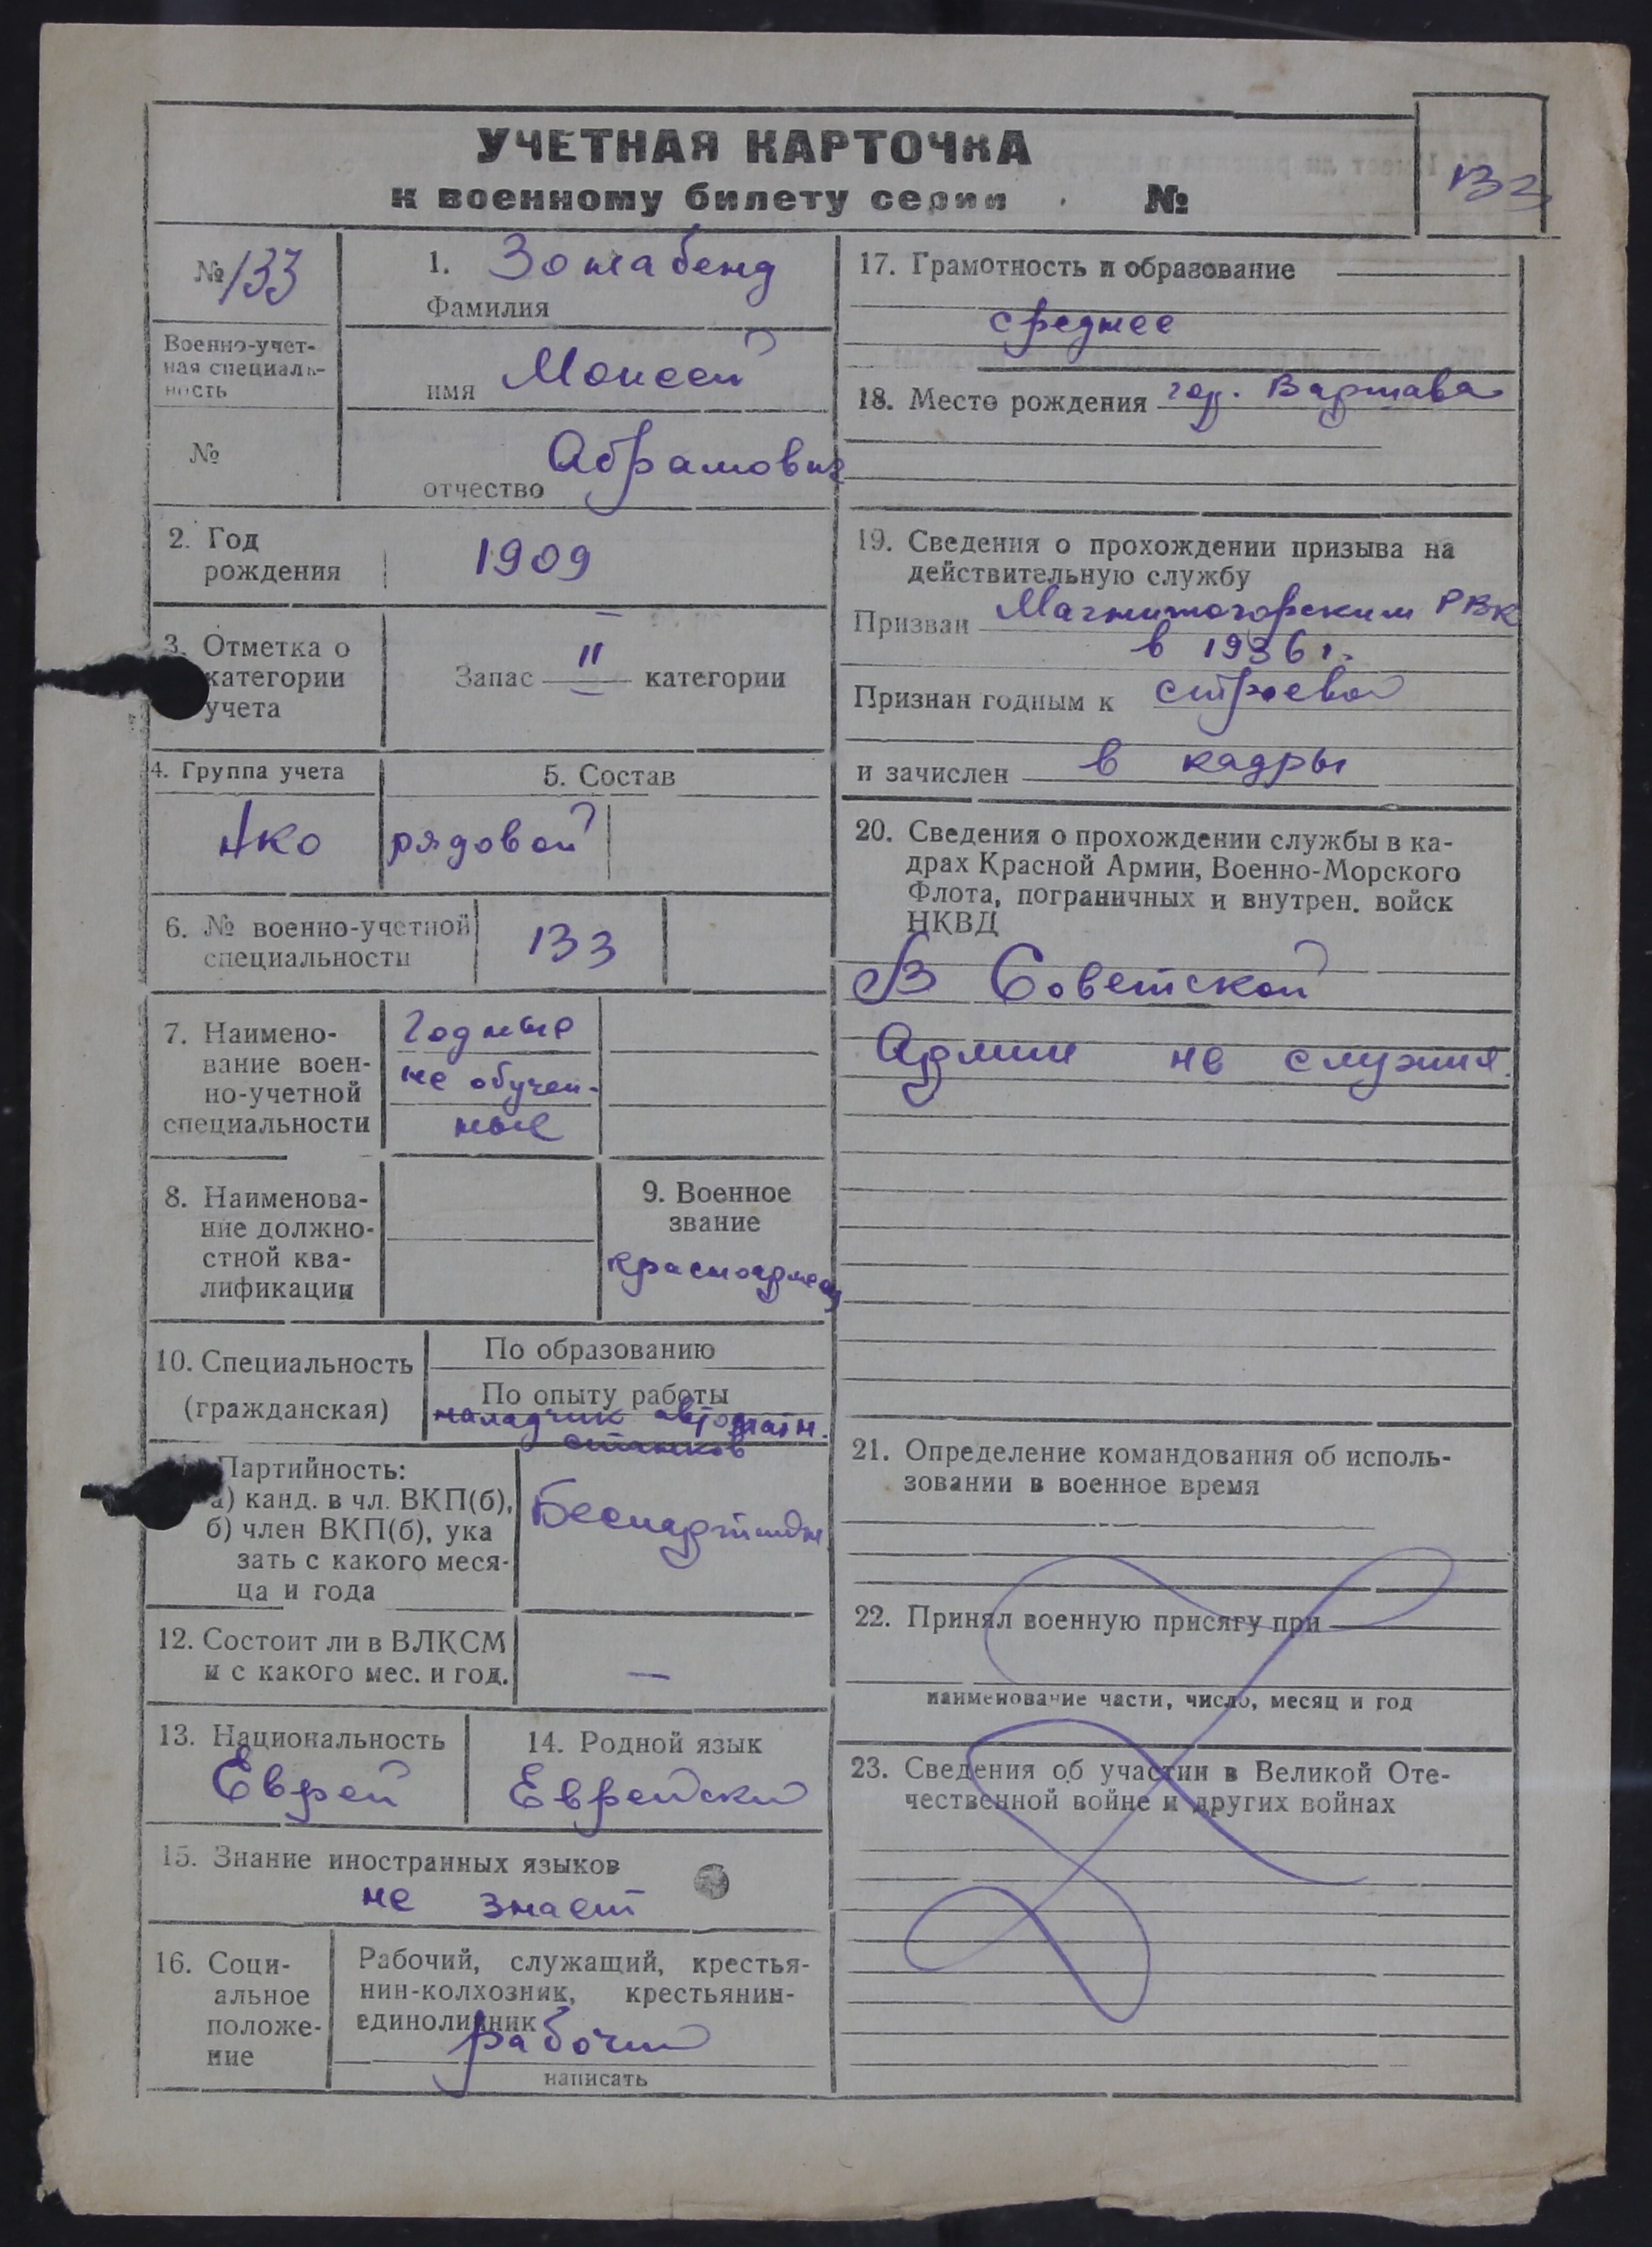 УЧЕТНАЯ КАРТОЧКА
к военному билету серии №
133
№ 133
Военно-учет-
ная специаль-
ность
№
1. Зонабенд
Фамилия
имя Моисей
отчество Абрамович
2. Год
рождения
1909
3. Отметка о
категории
учета
Запас II категории
4. Группа учета
5. Состав
рядовой
6. № военно-учетной
специальности
133
7. Наимено-
вание воен-
но-учетной
специальности
Годные
не обучен-
ные
8. Наименова-
ние должно-
стной ква-
лификации
9. Военное
звание
красноармеец
10. Специальность
(гражданская)
По образованию
По опыту работы
наладчик автоматн.
станков
Партийность:
а) канд. в чл. ВКП(б),
б) член ВКП(б), ука
зать с какого меся-
ца и года
Беспартийн.
12. Состоит ли в ВЛКСМ
и с какого мес. и год.
—
13. Национальность
Еврей
14. Родной язык
Еврейский
15. Знание иностранных языков
не знает
16. Соци-
альное
положе-
ние
Рабочий, служащий, крестья-
нин-колхозник, крестьянин-
единоличник
рабочий
написать
17. Грамотность и образование
среднее
18. Место рождения гор. Варшава
19. Сведения о прохождении призыва на
действительную службу
Призван Магнитогорским РВК
в 1936 г.
Признан годным к строевой
и зачислен в кадры
20. Сведения о прохождении службы в ка-
драх Красной Армии, Военно-Морского
Флота, пограничных и внутрен. войск
НКВД
В Советской
Армии не служил.
21. Определение командования об исполь-
зовании в военное время
22. Принял военную присягу при
наименование части, число, месяц и год
23. Сведения об участии в Великой Оте-
чественной войне и других войнах